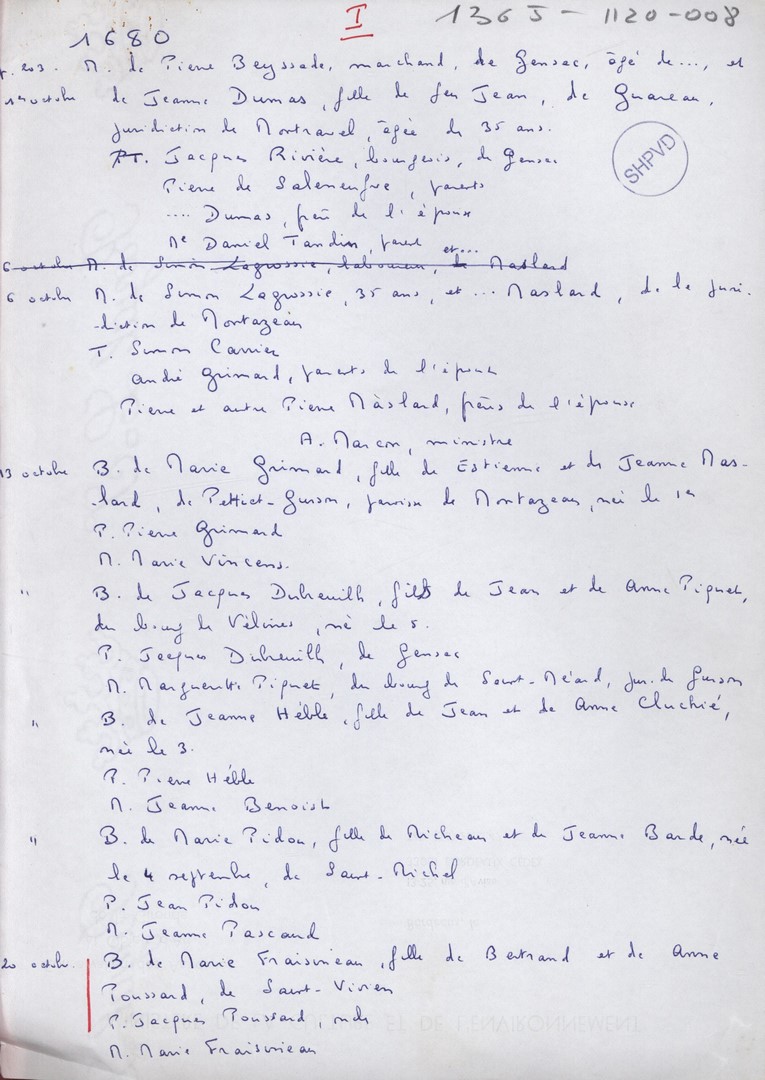 I
136 J - 1120-008
1680
f. 203. M. de Pierre Beyssade, marchand, de Gensac, âgé de ..., et
octobre de Jeanne Dumas, fille de feu Jean, de
juridiction de Montravel, âgée de 35 ans.
PT. Jacques Rivière, bourgeois, de Gensac
Pierre de Saleneufve, parents
.... Dumas, frère de l'épouse
Me Daniel Tandin, parent et...
6 octobre M. de Simon Lagrossie, laboureur, de Maslard
6 octobre M. de Simon Lagrossie, 35 ans, et ... Maslard, de la juri-
-diction de Montazeau
T. Simon Carrier
André Grimard, parents de l'époux
Pierre et autre Pierre Maslard, frères de l'épouse
A. Marcon, ministre
13 octobre B. de Marie Grimard, fille de Estienne et de Jeanne Mas-
-lard, de Pettiet-Gurson, paroisse de Montazeau, née le
P. Pierre Grimard
M. Marie Vincens.
" B. de Jacques Dubreuilh, fils de Jean et de Anne Piquet,
du bourg de Vélines, né le 5.
P. Jacques Dubreuilh, de Gensac
M. Marguerite Piquet, du bourg de Saint-Méard, jur. de Gurson
" B. de Jeanne Héble, fille de Jean et de Anne Cluchié,
née le 3.
P. Pierre Héble
M. Jeanne Benoist
" B. de Marie Pidou, fille de Micheau et de Jeanne Barde, née
le 4 septembre, de Saint-Michel
P. Jean Pidou
M. Jeanne Pascaud
20 octobre. B. de Marie Fraisineau, fille de Bertrand et de Anne
Poussard, de Saint-Vivien
P. Jacques Poussard, mde
M. Marie Fraisineau
SHPVD
ET DE L'ENVIRONNEMENT